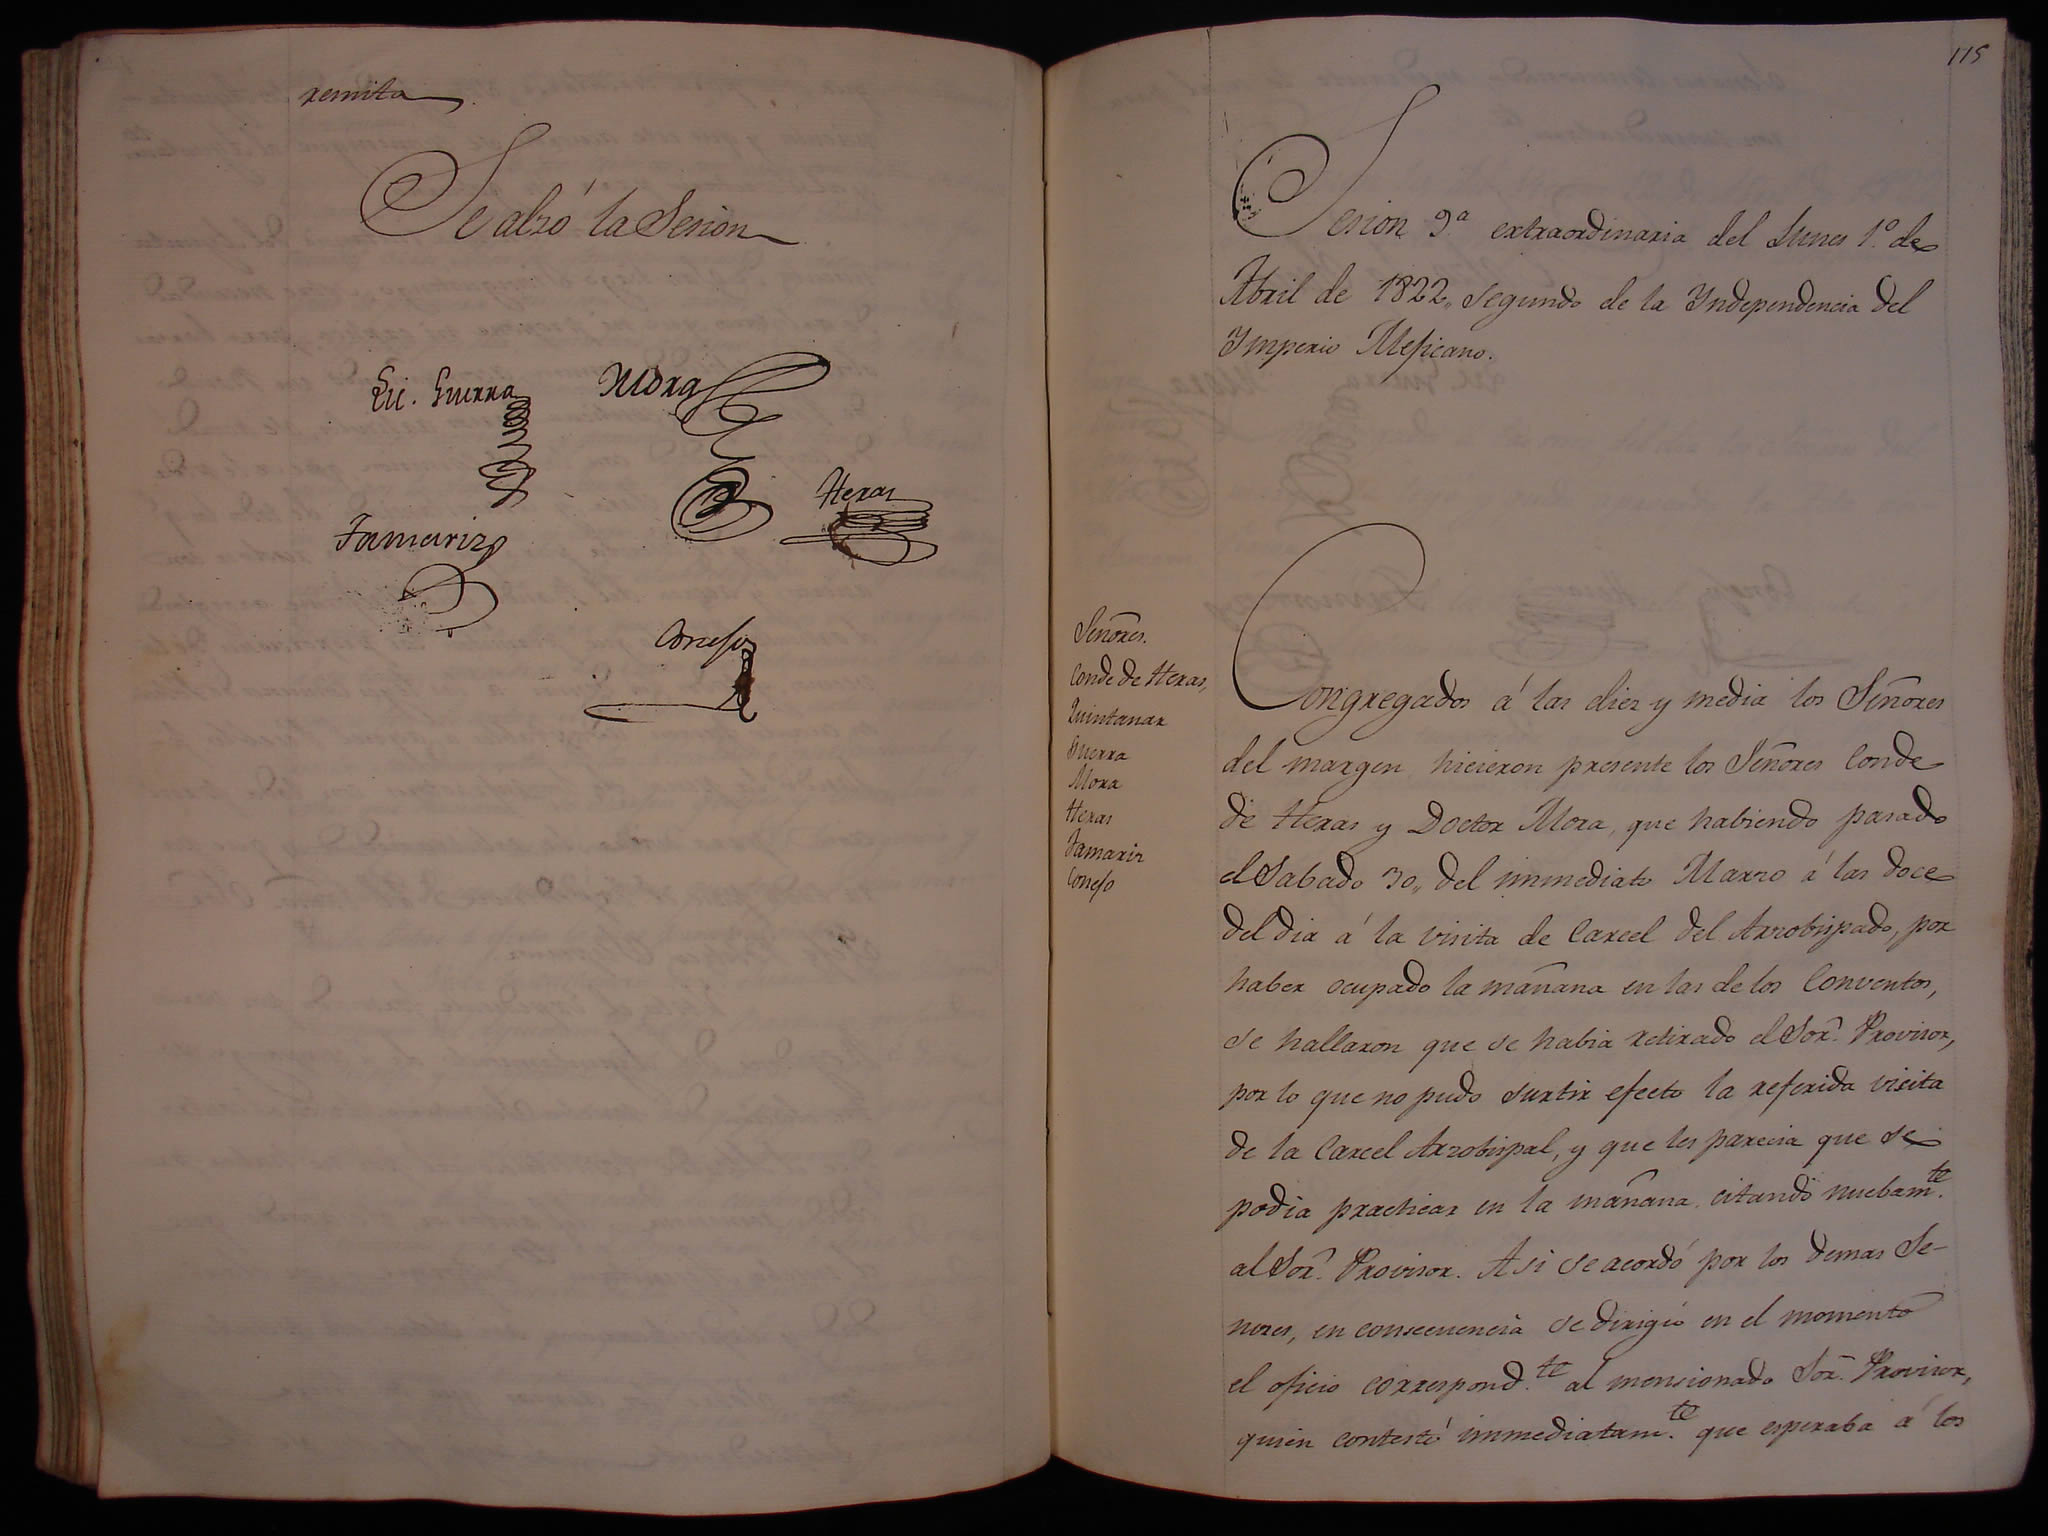 remita
Se alzó la Sesion
Lic. Guerra
Mora
Heras
Tamariz
Conejo
115
Sesion 9.ª extraordinaria del Lunes 1.º de
Abril de 1822,, segundo de la Yndependencia del
Ymperio Mejicano.
Señores.
Conde de Heras,
Quintanar
Guerra
Mora
Heras
Tamariz
Conejo
Congregados á las diez y media los Señores
del margen hicieron presente los Señores Conde
de Heras y Doctor Mora, que habiendo pasado
el Sabado 30,, del immediato Marzo á las doce
del dia á la visita de Carcel del Arzobispado, por
haber ocupado la mañana en las de los Conventos,
se hallaron que se habia retirado el Sor. Provisor,
por lo que no pudo surtir efecto la referida visita
de la Carcel Arzobispal, y que les parecia que se
podia practicar en la mañana citando nuebam.te
al Sor. Provisor. Asi se acordó por los demas Se-
nores, en consecuencia se dirigió en el momento
el oficio correspond.te al mensionado Sor. Provisor,
quien contestó immediatam.te que esperaba á los